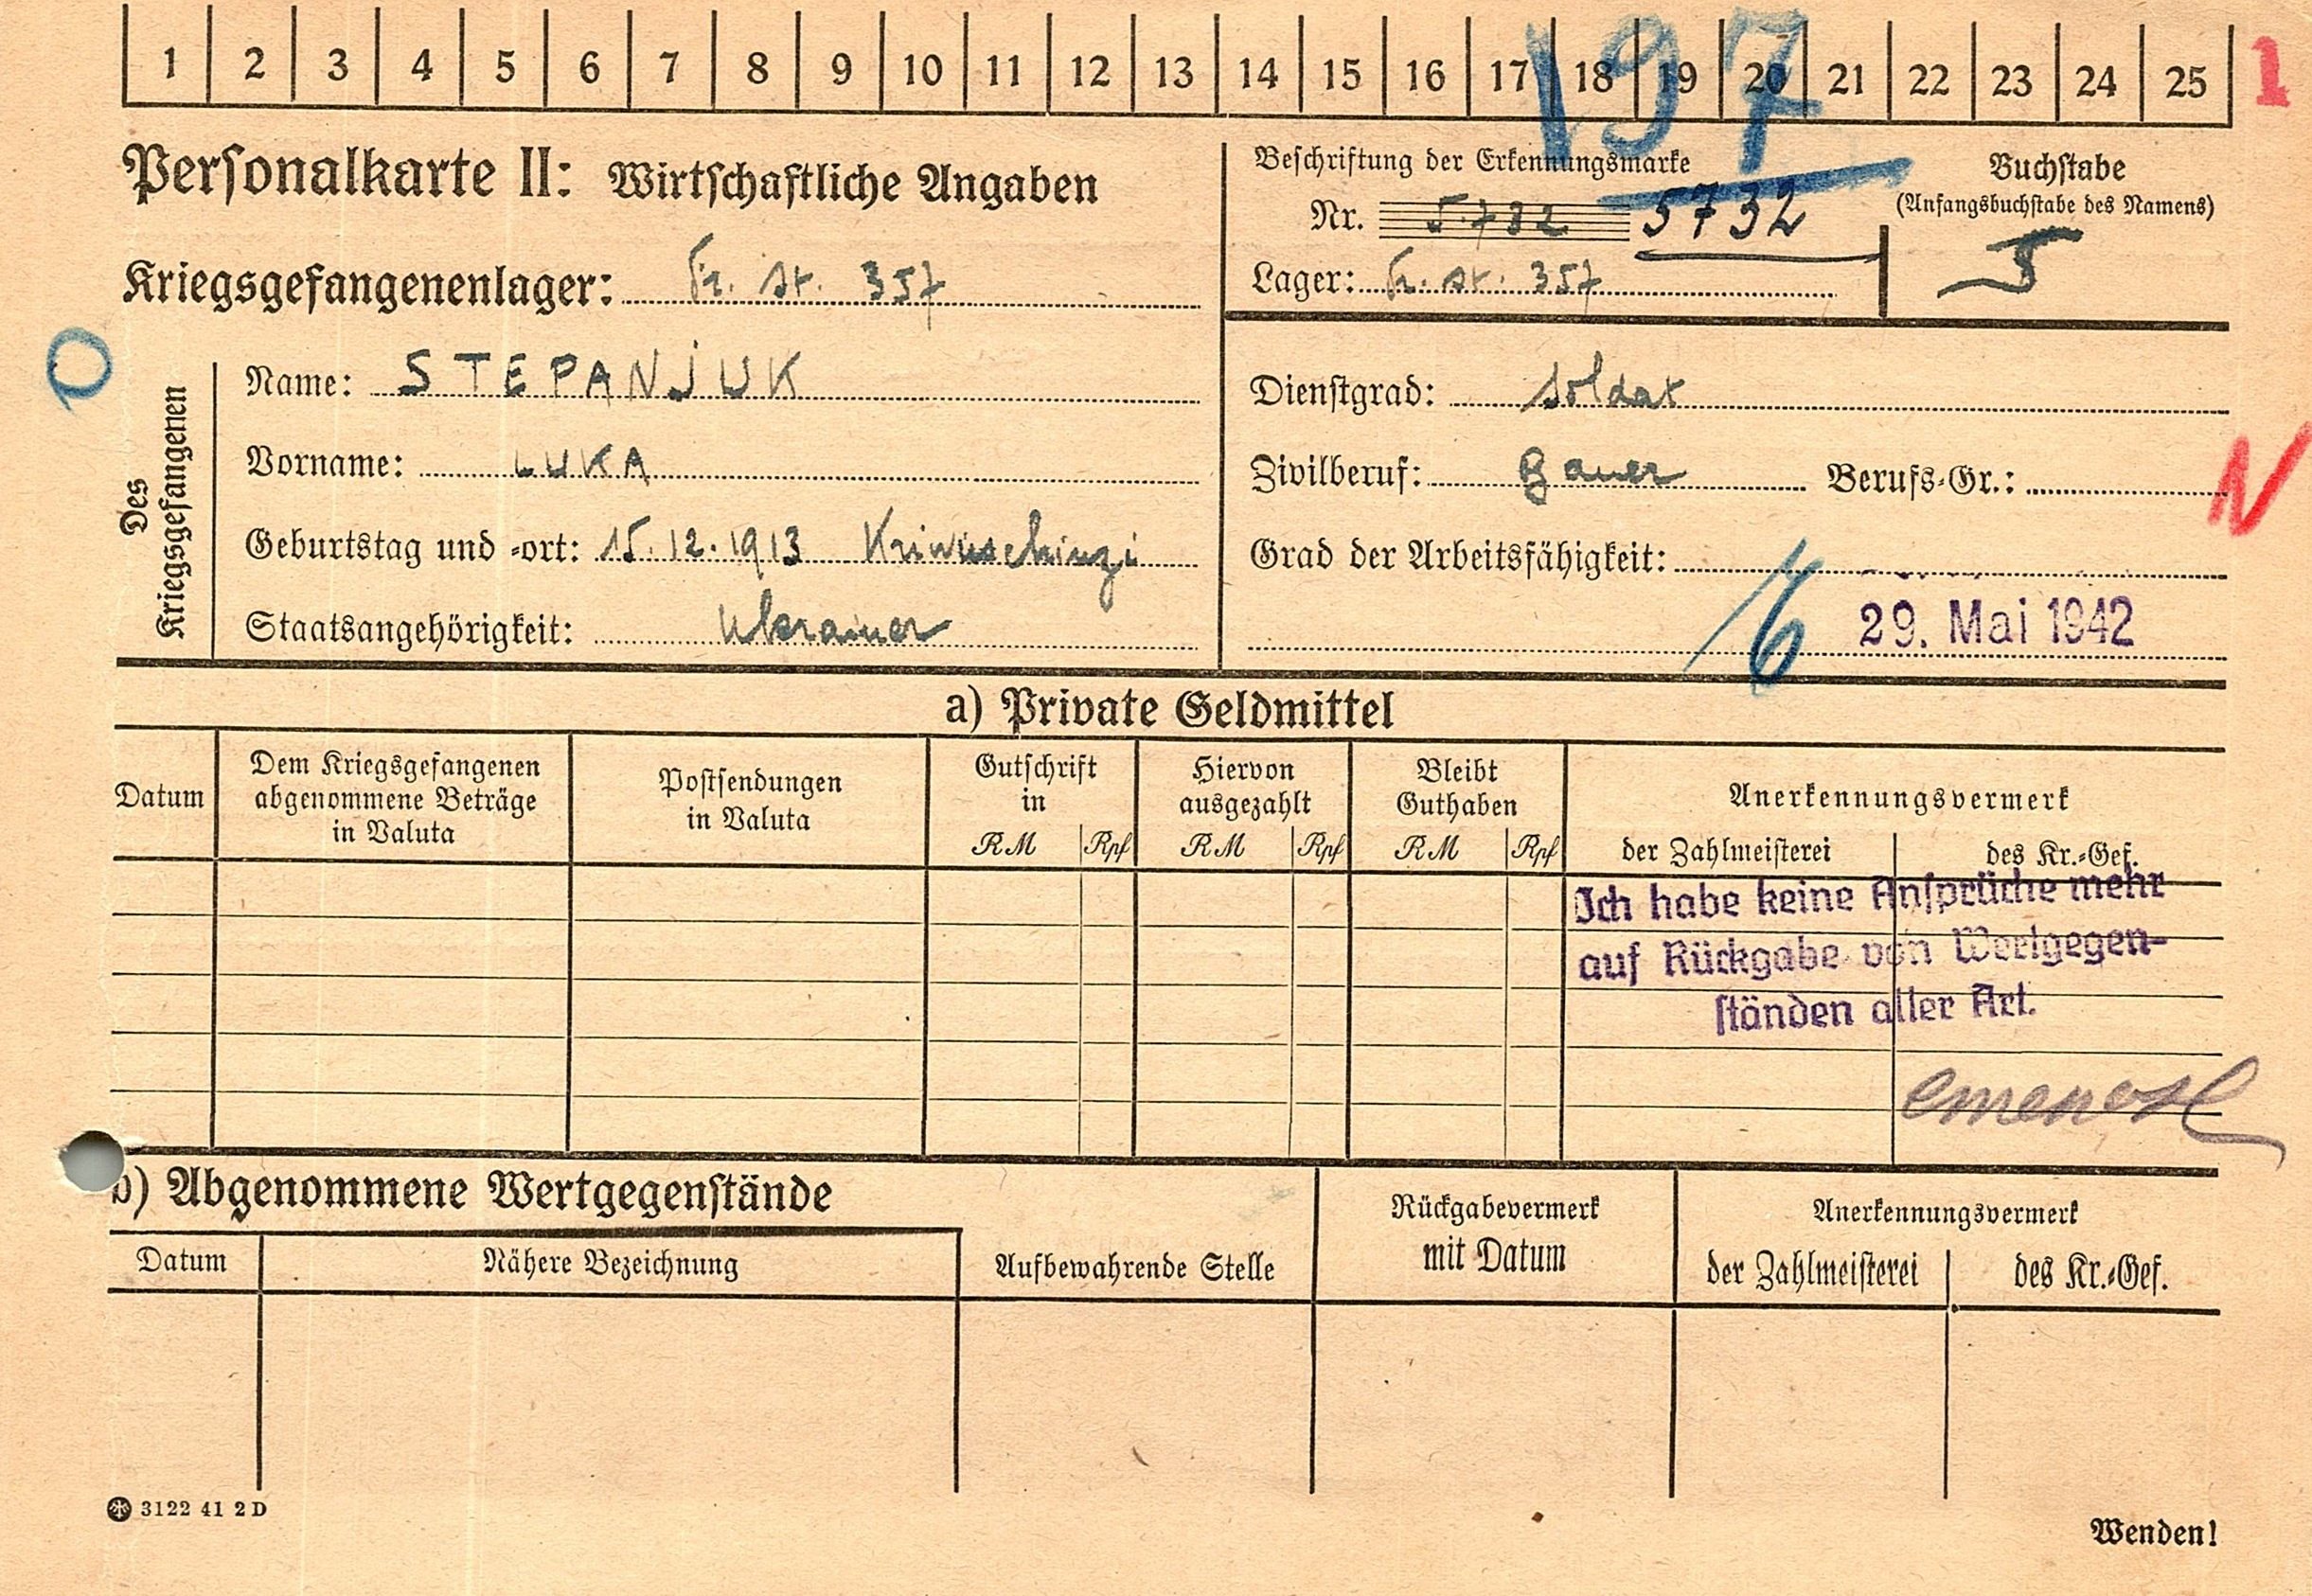 1 2 3 4 5 6 7 8 9 10 11 12 13 14 15 16 17 18 19 20 21 22 23 24 25 1
197
Personalkarte II: Wirtschaftliche Angaben
Beschriftung der Erkennungsmarke
Nr. 5732 5732
Lager: Fr. St. 357
Buchstabe
(Anfangsbuchstabe des Namens)
S
Kriegsgefangenenlager: Fr. St. 357
Des Kriegsgefangenen
Name: STEPANJUK
Vorname: LUKA
Geburtstag und -ort: 15.12.1913 Kriwuschinzi
Staatsangehörigkeit: Ukrainer
Dienstgrad: Soldat
Zivilberuf: Bauer Berufs-Gr.:
N
Grad der Arbeitsfähigkeit:
29. Mai 1942
a) Private Geldmittel
Datum
Dem Kriegsgefangenen abgenommene Beträge in Valuta
Postsendungen in Valuta
Gutschrift in
RM Rpf
Hiervon ausgezahlt
RM Rpf
Bleibt Guthaben
RM Rpf
Anerkennungsvermerk
der Zahlmeisterei des Kr.-Gef.
Ich habe keine Ansprüche mehr
auf Rückgabe von Wertgegen-
ständen aller Art.
b) Abgenommene Wertgegenstände
Datum Nähere Bezeichnung
Aufbewahrende Stelle
Rückgabevermerk
mit Datum
Anerkennungsvermerk
der Zahlmeisterei des Kr.-Gef.
3122 41 2 D
Wenden!